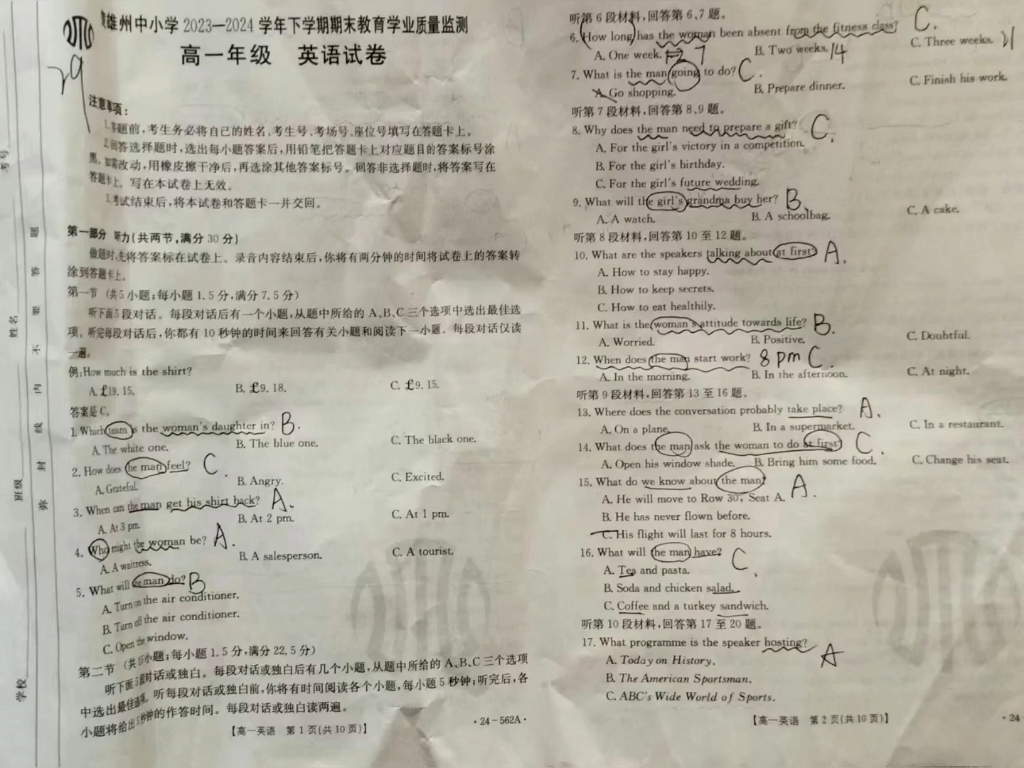 雄州中小学 2023—2024 学年下学期期末教育学业质量监测
高一年级 英语试卷
29
注意事项:
1.答题前,考生务必将自己的姓名、考生号、考场号、座位号填写在答题卡上。
2.回答选择题时,选出每小题答案后,用铅笔把答题卡上对应题目的答案标号涂
黑。如需改动,用橡皮擦干净后,再选涂其他答案标号。回答非选择题时,将答案写在
答题卡上。写在本试卷上无效。
3.考试结束后,将本试卷和答题卡一并交回。
第一部分 听力(共两节,满分 30 分)
做题时,先将答案标在试卷上。录音内容结束后,你将有两分钟的时间将试卷上的答案转
涂到答题卡上。
第一节 (共5小题;每小题 1.5 分,满分 7.5 分)
听下面5段对话。每段对话后有一个小题,从题中所给的 A、B、C 三个选项中选出最佳选
项。听完每段对话后,你都有 10 秒钟的时间来回答有关小题和阅读下一小题。每段对话仅读
一遍。
例:How much is the shirt?
A. £19. 15. B. £9. 18. C. £9. 15.
答案是C。
1. Which team is the woman's daughter in? B.
A. The white one. B. The blue one. C. The black one.
2. How does the man feel? C.
A. Grateful. B. Angry. C. Excited.
3. When can the man get his shirt back? A.
A. At 3 pm. B. At 2 pm. C. At 1 pm.
4. Who might the woman be? A.
A. A waitress. B. A salesperson. C. A tourist.
5. What will the man do? B
A. Turn on the air conditioner.
B. Turn off the air conditioner.
C. Open the window.
第二节 (共15小题;每小题 1.5 分,满分 22.5 分)
听下面5段对话或独白。每段对话或独白后有几个小题,从题中所给的 A、B、C 三个选项
中选出最佳选项。听每段对话或独白前,你将有时间阅读各个小题,每小题 5 秒钟;听完后,各
小题将给出5秒钟的作答时间。每段对话或独白读两遍。
【高一英语 第 1 页(共 10 页)】
· 24-562A ·
听第 6 段材料,回答第 6、7 题。
6. How long has the woman been absent from the fitness class? C.
A. One week. 7 B. Two weeks. 14 C. Three weeks. 21
7. What is the man going to do? C.
A. Go shopping. B. Prepare dinner. C. Finish his work.
听第 7 段材料,回答第 8、9 题。
8. Why does the man need to prepare a gift? C.
A. For the girl's victory in a competition.
B. For the girl's birthday.
C. For the girl's future wedding.
9. What will the girl's grandma buy her? B.
A. A watch. B. A schoolbag. C. A cake.
听第 8 段材料,回答第 10 至 12 题。
10. What are the speakers talking about at first? A.
A. How to stay happy.
B. How to keep secrets.
C. How to eat healthily.
11. What is the woman's attitude towards life? B.
A. Worried. B. Positive. C. Doubtful.
12. When does the man start work? 8pm C.
A. In the morning. B. In the afternoon. C. At night.
听第 9 段材料,回答第 13 至 16 题。
13. Where does the conversation probably take place? A.
A. On a plane. B. In a supermarket. C. In a restaurant.
14. What does the man ask the woman to do at first? C.
A. Open his window shade. B. Bring him some food. C. Change his seat.
15. What do we know about the man? A.
A. He will move to Row 30, Seat A.
B. He has never flown before.
C. His flight will last for 8 hours.
16. What will the man have? C.
A. Tea and pasta.
B. Soda and chicken salad.
C. Coffee and a turkey sandwich.
听第 10 段材料,回答第 17 至 20 题。
17. What programme is the speaker hosting? A
A. Today on History.
B. The American Sportsman.
C. ABC's Wide World of Sports.
【高一英语 第 2 页(共 10 页)】
· 24
考号
姓名
班级
学校
弥 封 线 内 不 要 答 题